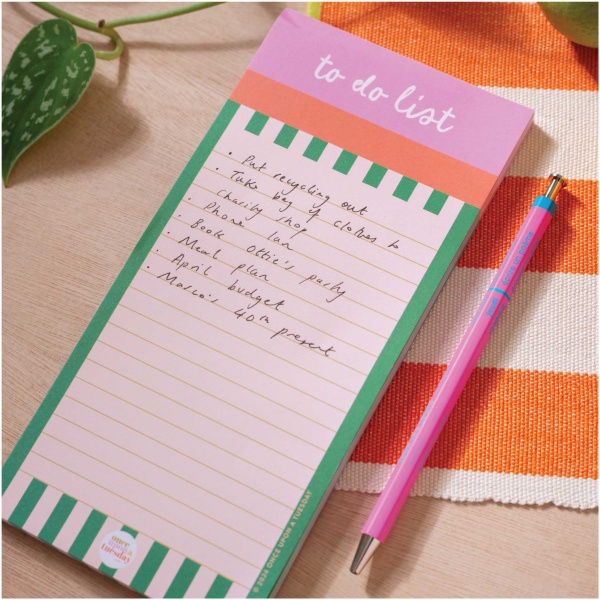 to do list
• Put recycling out
• Take bag of clothes to
Charity shop
• Phone Ian
• Book Ottie's party
• Meal plan
• April budget
• Marco's 40th present
once
upon a
tuesday
© 2024 ONCE UPON A TUESDAY